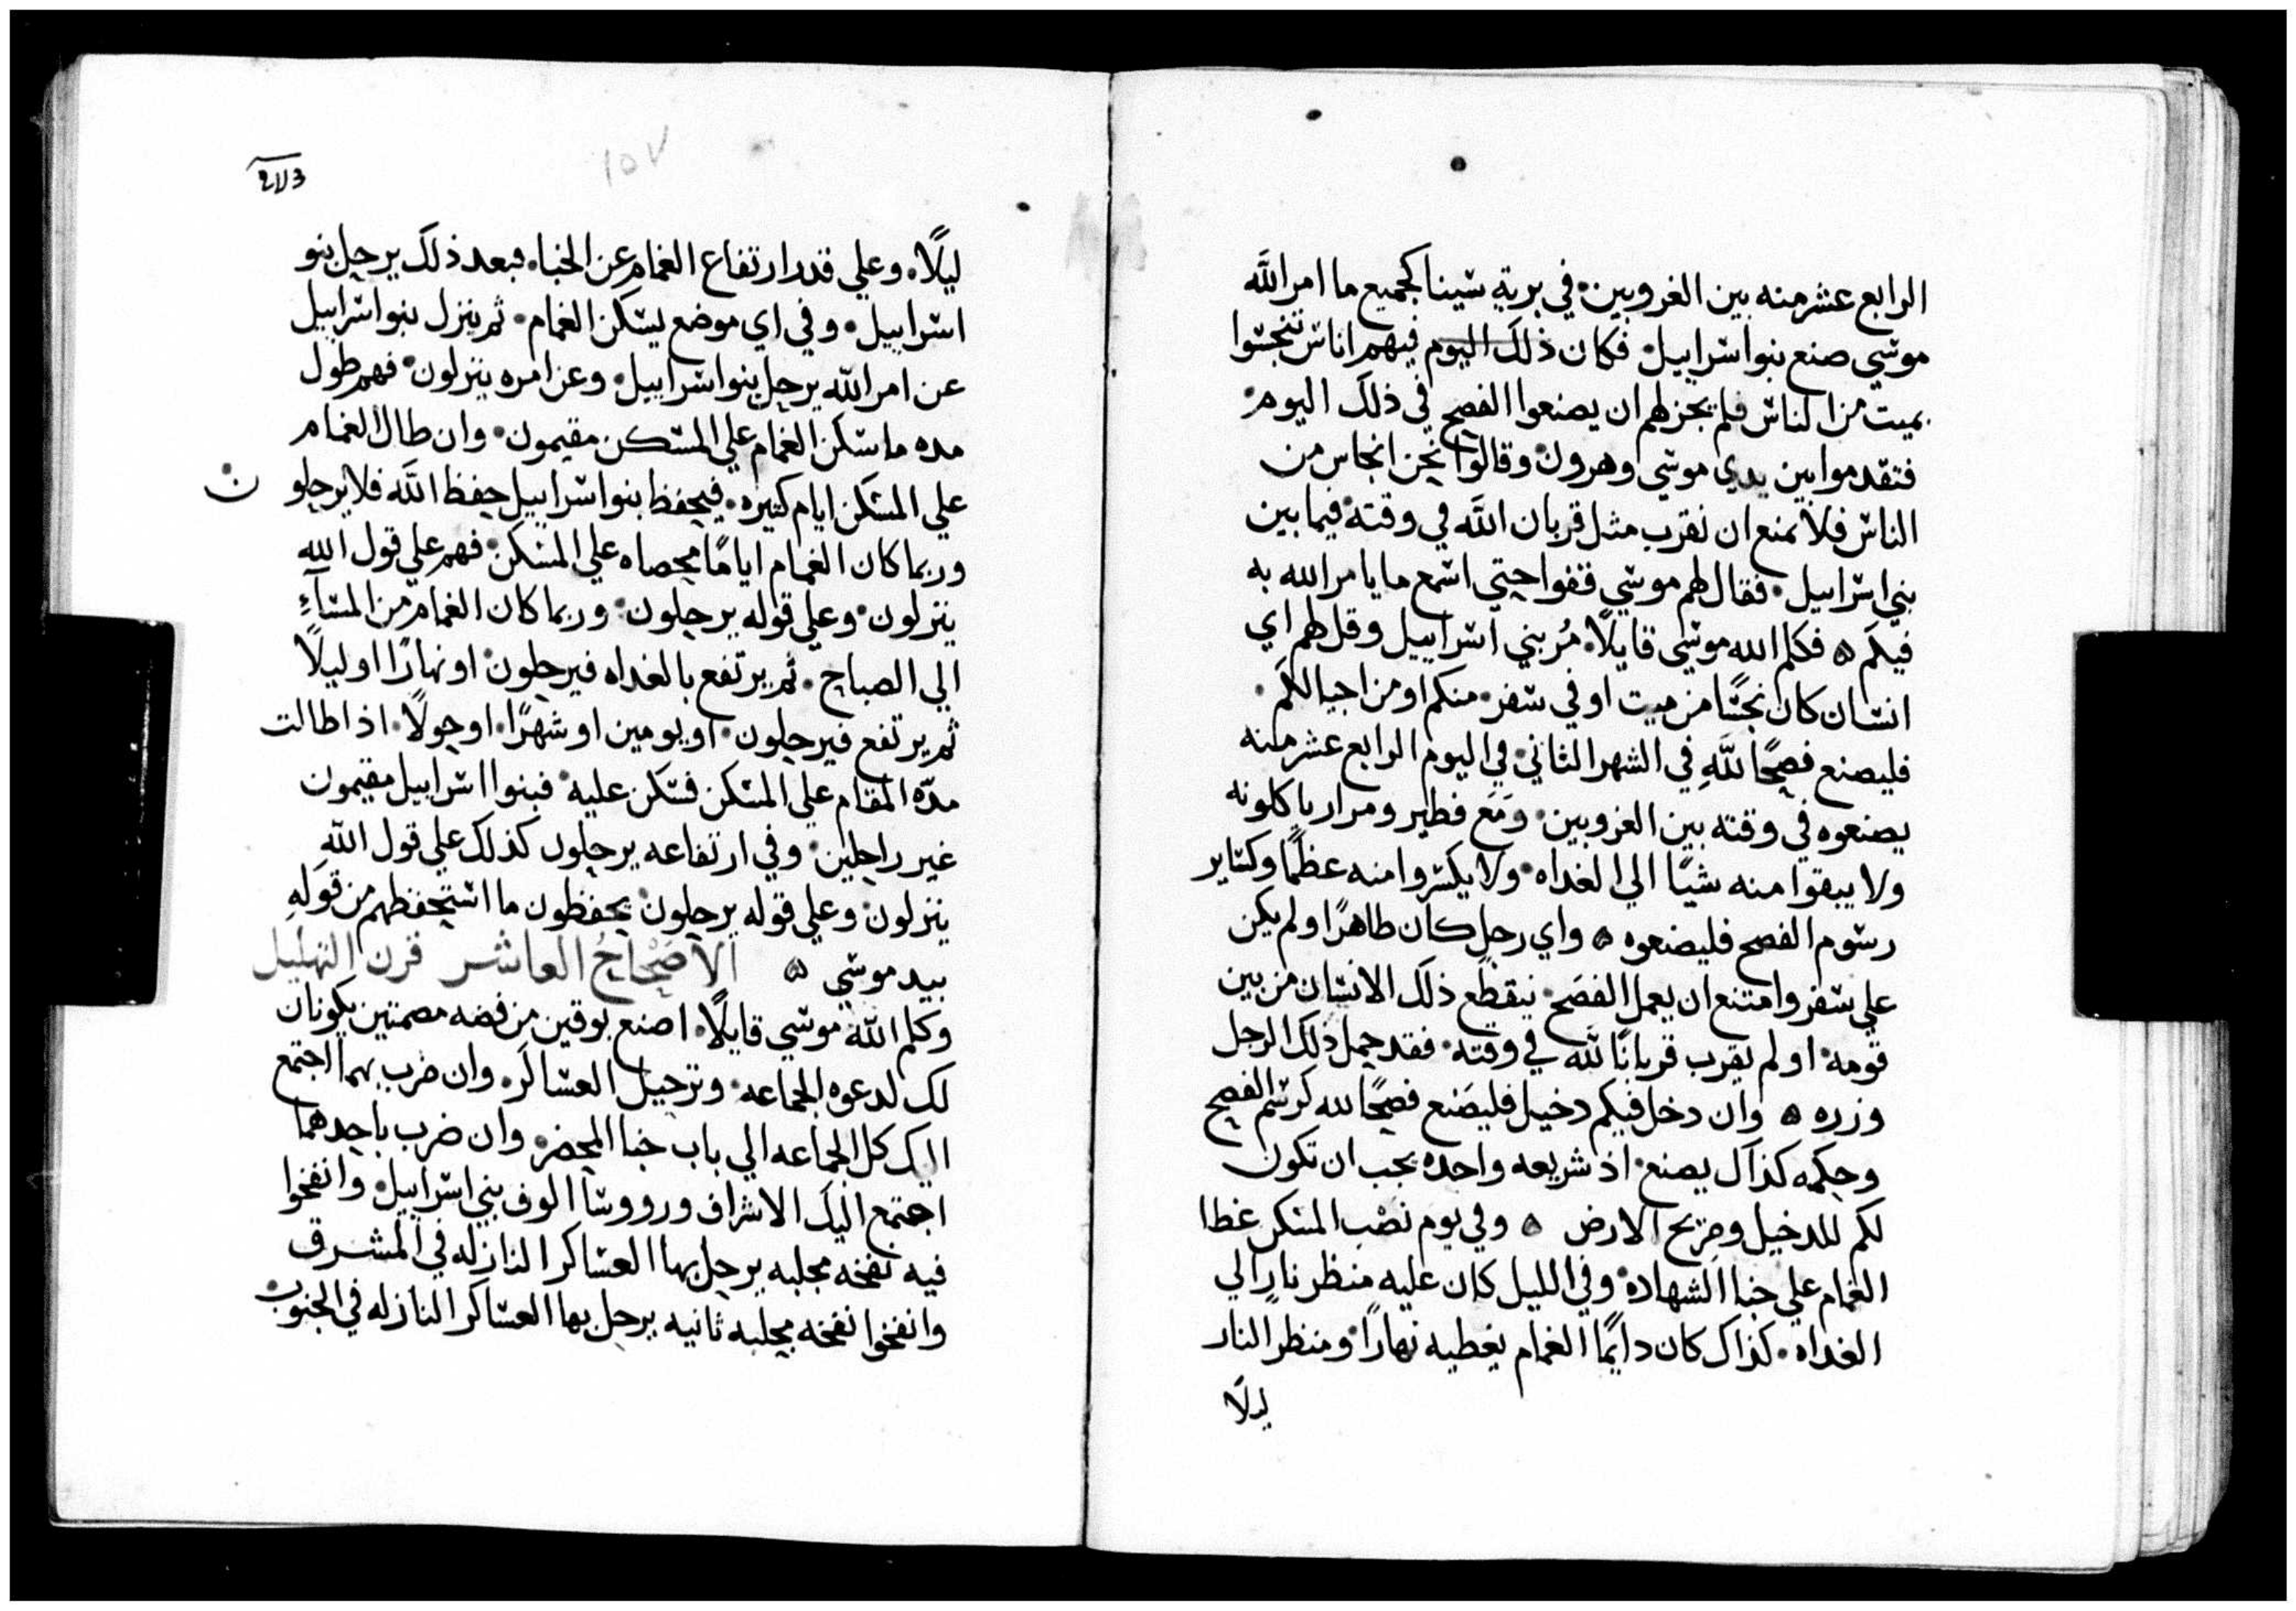 الرابع عشر منه بين الغروبين۰ في برية سينا كجميع ما امر اللَّه
موسي صنع بنو اسراييل۰ فكان ذلك اليوم فيهم اناس تنجسوا
بميت من الناس فلم يجز لهم ان يصنعوا الفصح في ذلك اليوم۰
فتقدموا بين يدي موسي وهرون۰ وقالوا نحن انجاس من
الناس فلا نمنع ان نقرب مثل قربان اللَّه في وقته۰ فيما بين
بني اسراييل۰ فقال لهم موسي قفوا حتي اسمع ما يامر الله به
فيكم ۵ فكلم الله موسي قايلًا۰ مُر بني اسراييل وقل لهم اي
انسان كان نجسًا من ميت او في سفر۰ منكم او من اجيالكم۰
فليصنع فصحًا للَّهِ في الشهر الثاني۰ في اليوم الرابع عشر منه
يصنعوه في وقته بين الغروبين۰ وَمَع فطير ومرار ياكلونه
ولا يبقوا منه شيًا الي الغداه۰ ولا يكسروا منه عظمًا وكساير
رسوم الفصح فليصنعوه ۵ واي رجل كان طاهرًا ولم يكن
علي سفر وامتنع ان يعمل الفصح۰ ينقطع ذلك الانسان من بين
قومه۰ او لم يقرب قربانًا للَّه في وقته۰ فقد حمل ذلك الرجل
وزره ۵ وان دخل فيكم دخيل فليصَنع فصحًا لله كرسم الفصح
وحكمه كذاك يصنع۰ اذ شريعه واحده يجب ان تكون
لكم للدخيل وصَريح الارض ۵ وفي يوم نصْب المسكن غطا
الغمام علي خبا الشهادة۰ وفي الليل كان عليه منظر نارٍ الي
الغداه۰ كذاك كان دايمًا الغمام يغطيه نهارًا۰ ومنظر النار
ليلًا
213
١٥٧
ليلًا۰ وعلي قدر ارتفاع الغمام عن الخبا۰ فبعد ذلك يرحل بنو
اسراييل۰ وفي اي موضع يسكن الغمام۰ ثم ينزل بنو اسراييل
عن امر اللّه يرحل بنو اسراييل۰ وعن امره ينزلون۰ فهم طول
مده ما سكن الغمام علي المسكن مقيمون۰ وان طال الغمام
علي المسكن ايام كثيره۰ فيحفظ بنو اسراييل حفظ اللَّه فلا يرحلو ن
وربما كان الغمام ايامًا محصاه علي المسكن۰ فهم علي قول الله
ينزلون۰ وعلي قوله يرحلون۰ وربما كان الغمام من المسآءِ
الي الصباح۰ ثم يرتفع بالغداه فيرحلون۰ او نهارًا او ليلًا
ثم يرتفع فيرحلون۰ او يومين او شهرًا۰ او حولًا۰ اذا طالت
مدّه المقام علي المسكن فسكن عليه۰ فبنوا اسراييل مقيمون
غير راحلين۰ وفي ارتفاعه يرحلون كذلك علي قول اللَّهِ
ينزلون۰ وعلي قوله يرحلون۰ يحفظون ما استحفظهم من قولهِ
بيد موسي ۵ الاصْحاحُ العاشر قرن التهليل
وكلم اللّه موسي قايلًا۰ اصنع بوقين من فضه مصمتين يكونان
لك لدعوه الجماعه۰ وترحيل العساكر۰ وان ضرب بهما اجتمع
اليك كل الجماعه الي باب خبا المحضر۰ وان ضرب باحدهما
اجتمع اليك الاشراف وروؤسا الوف بني اسراييل۰ وانفخوا
فيه نفخه مجلبه يرحل بها العساكر النازله في المشرق
وانفخوا نفخه مجلبه ثانيه يرحل بها العساكر النازله في الجنوب۰